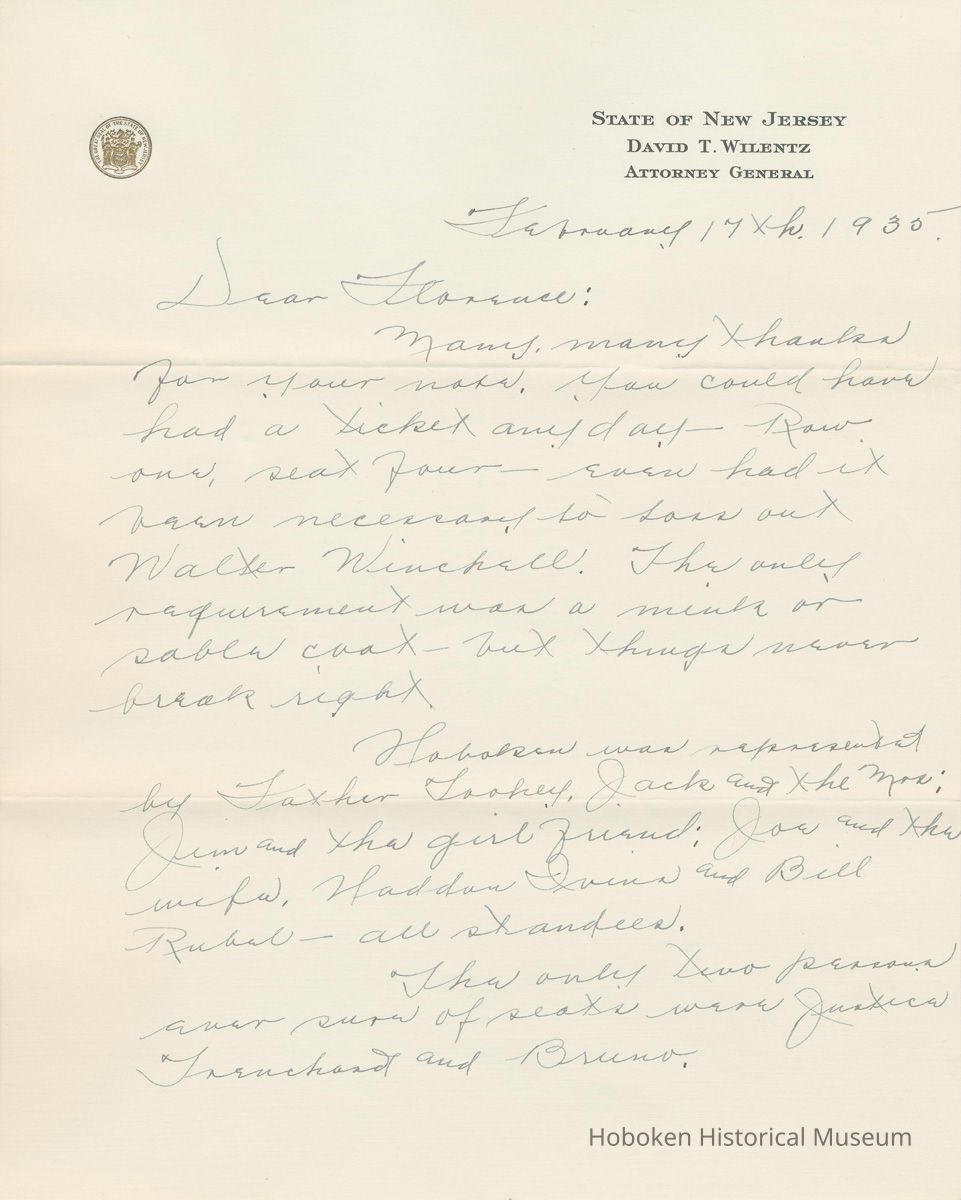 THE GREAT SEAL OF THE STATE OF NEW JERSEY
STATE OF NEW JERSEY
DAVID T. WILENTZ
ATTORNEY GENERAL
February 17th. 1935.
Dear Florence:
Many, many thanks
for your note. You could have
had a ticket any day — Row
one, seat four — even had it
been necessary to toss out
Walter Winchell. The only
requirement was a mink or
sable coat — but things never
break right.
Hoboken was represented
by Father Toohey, Jack and the Mrs;
Jim and the girl friend; Joe and the
wife, Haddon Ivins and Bill
Rubel — all standees.
The only two persons
ever sure of seats were Justice
Trenchard and Bruno.
Hoboken Historical Museum